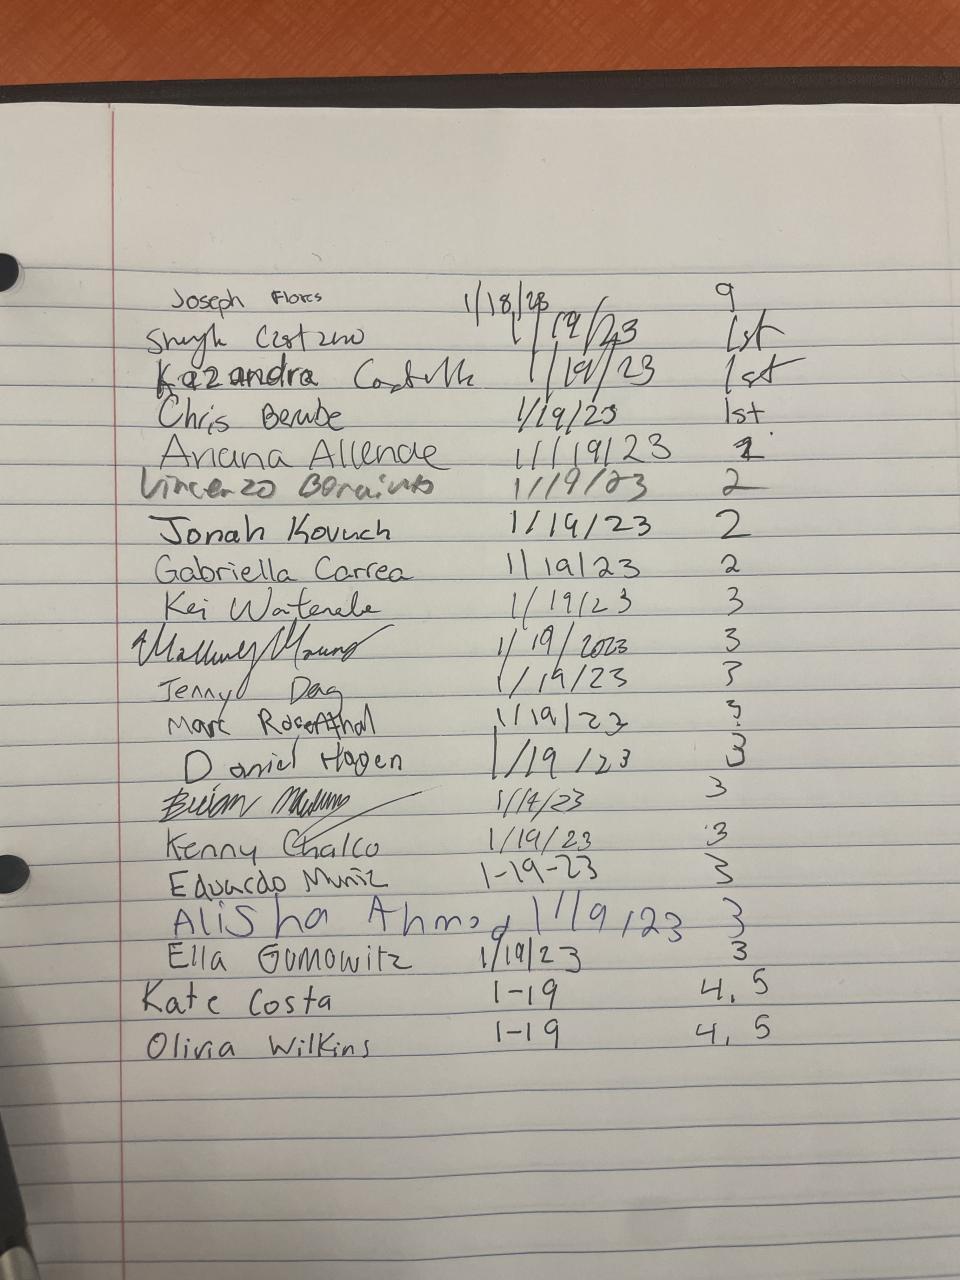 Joseph Flores 1/18/23 9
Castano 1/19/23 1st
Kazandra 1/19/23 1st
Chris Berube 1/19/23 1st
Ariana Allende 1/19/23 2
Vincenzo 1/19/23 2
Jonah Kovach 1/19/23 2
Gabriella Correa 1/19/23 2
Kei Watenabe 1/19/23 3
1/19/2023 3
Jenny 1/19/23 3
Marc Rosenthal 1/19/23 3
Daniel Hagen 1/19/23 3
Brian 1/19/23 3
Kenny Chalco 1/19/23 3
Eduardo Muñiz 1-19-23 3
Alisha Ahmad 1/19/23 3
Ella Gomowitz 1/19/23 3
Kate Costa 1-19 4, 5
Olivia Wilkins 1-19 4, 5